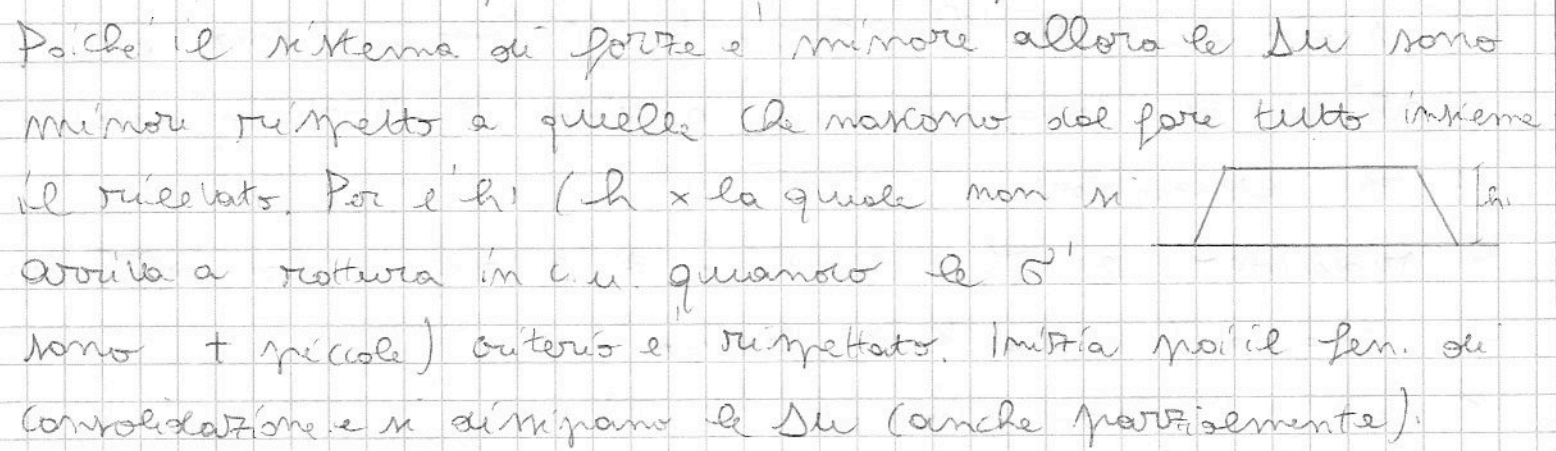 Poiché il sistema di forze è minore allora le Δu sono
minori rispetto a quelle che nascono dal fare tutto insieme
il rilevato. Per è h₁ (h x la quale non si
h₁
arriva a rottura in c.u. quando le σ'
sono + piccole) criterio è rispettato. Inizia poi il fen. di
consolidazione e si dissipano le Δu (anche parzialmente).